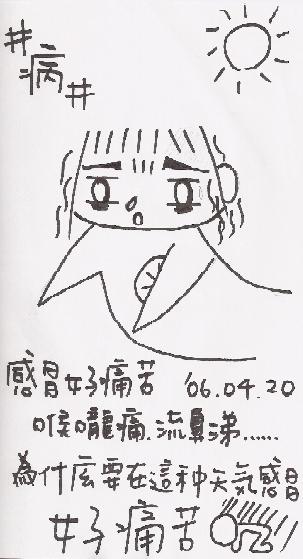 #病#
感冒好痛苦 '06.04.20
喉嚨痛.流鼻涕......
為什庅要在這种天氣感冒
好痛苦